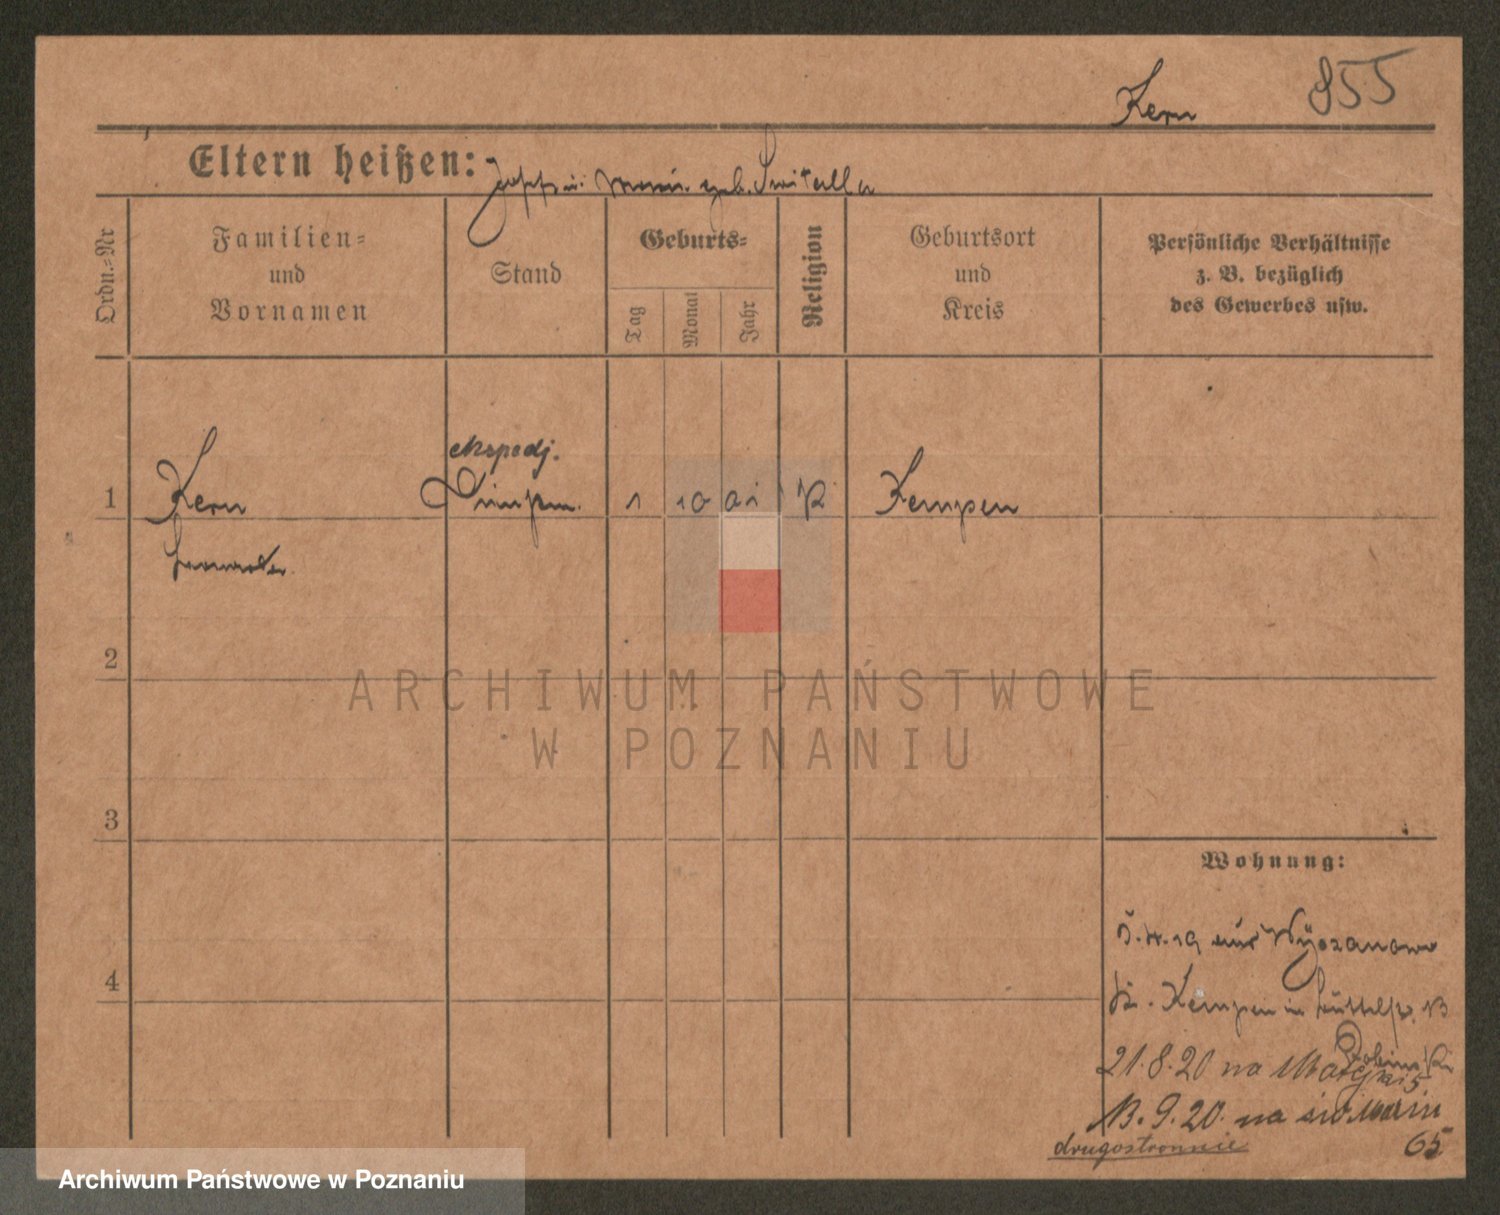 Kern 855
Eltern heißen: Josef u. Maria geb. Switalla
Ordn.=Nr
Familien=
und
Vornamen
Stand
Geburts=
Tag
Monat
Jahr
Religion
Geburtsort
und
Kreis
Persönliche Verhältnisse
z. B. bezüglich
des Gewerbes usw.
ekspedj.
1 Kern 1 10 01 K Kempen
2
3
4
Wohnung:
19 aus Wyszanow
Kr. Kempen in
21.8.20 na Matejki 5
13.9.20. na św. Marcin
65
drugostronnie
ARCHIWUM PAŃSTWOWE
W POZNANIU
Archiwum Państwowe w Poznaniu